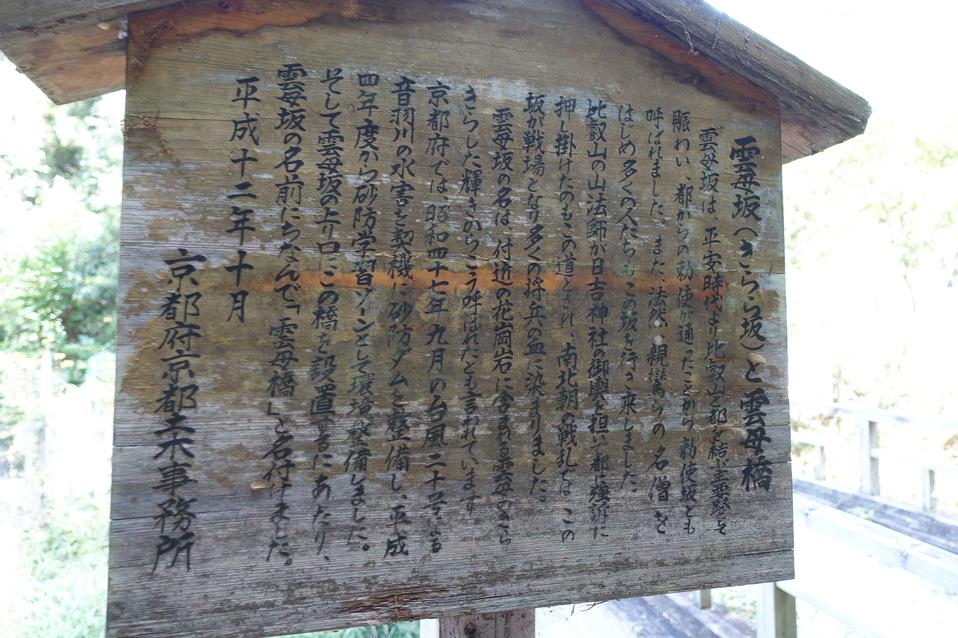 雲母坂(きらら坂)と雲母橋
雲母坂は、平安時代より比叡山と都を結ぶ主要路として
賑わい、都からの勅使が通ったことから勅使坂とも
呼ばれました。また、法然・親鸞らの名僧を
はじめ多くの人たちもこの坂を行き来しました。
比叡山の山法師が日吉神社の御輿を担いで都へ強訴に
押し掛けたのもこの道とされ、南北朝の戦乱では、この
坂が戦場となり多くの将兵の血に染まりました。
雲母坂の名は、付近の花崗岩に含まれる雲母のきら
きらした輝きからこう呼ばれたとも言われています。
京都府では、昭和四十七年九月の台風二十号による
音羽川の水害を契機に砂防ダムを整備し、平成
四年度から砂防学習ゾーンとして環境整備しました。
そして雲母坂の上り口にこの橋を設置するにあたり、
雲母坂の名前にちなんで「雲母橋」と名付けました。
平成十二年十月
京都府京都土木事務所